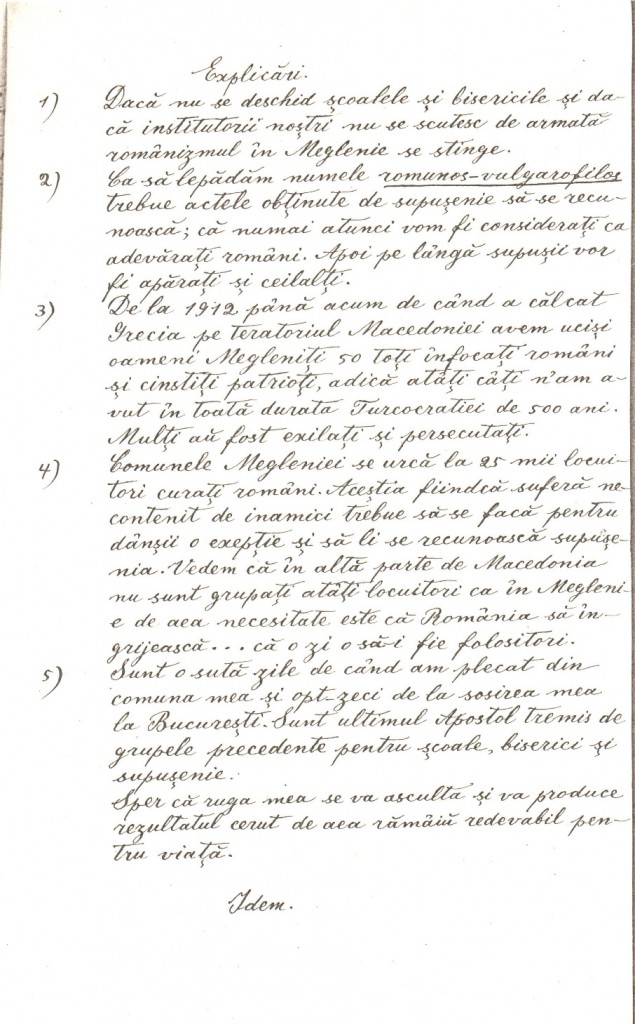 Explicări.
1) Dacă nu se deschid școalele și bisericile și da-
că institutorii noștri nu se scutesc de armată
românizmul în Meglenie se stinge.
2) Ca să lepădăm numele romunos-vulgarofilos
trebue actele obținute de supușenie să se recu-
noască; că numai atunci vom fi considerați ca
adevărați români. Apoi pe lângă supușii vor
fi apărați și ceilalți.
3) De la 1912 până acum de când a călcat
Grecia pe teratoriul Macedoniei avem uciși
oameni Megleniți 50 toți înfocați români
și cinstiți patrioți, adică atâți câți n'am a-
vut în toată durata Turcocratiei de 500 ani.
Mulți aŭ fost exilați și persecutați.
4) Comunele Megleniei se urcă la 25 mii locui-
tori curați români. Aceștia fiindcă suferă ne-
contenit de inamici trebue să se facă pentru
dânșii o exepție și să li se recunoască supușe-
nia. Vedem că în altă parte de Macedonia
nu sunt grupați atâți locuitori ca în Megleni-
e de aea necesitate este că România să în-
grijească... că o zi o să-i fie folositori.
5) Sunt o sută zile de când am plecat din
comuna mea și opt-zeci de la sosirea mea
la București. Sunt ultimul Apostol tremis de
grupele precedente pentru școale, biserici și
supușenie.
Sper că ruga mea se va asculta și va produce
rezultatul cerut de aea rămâiŭ redevabil pen-
tru viață.
Idem.